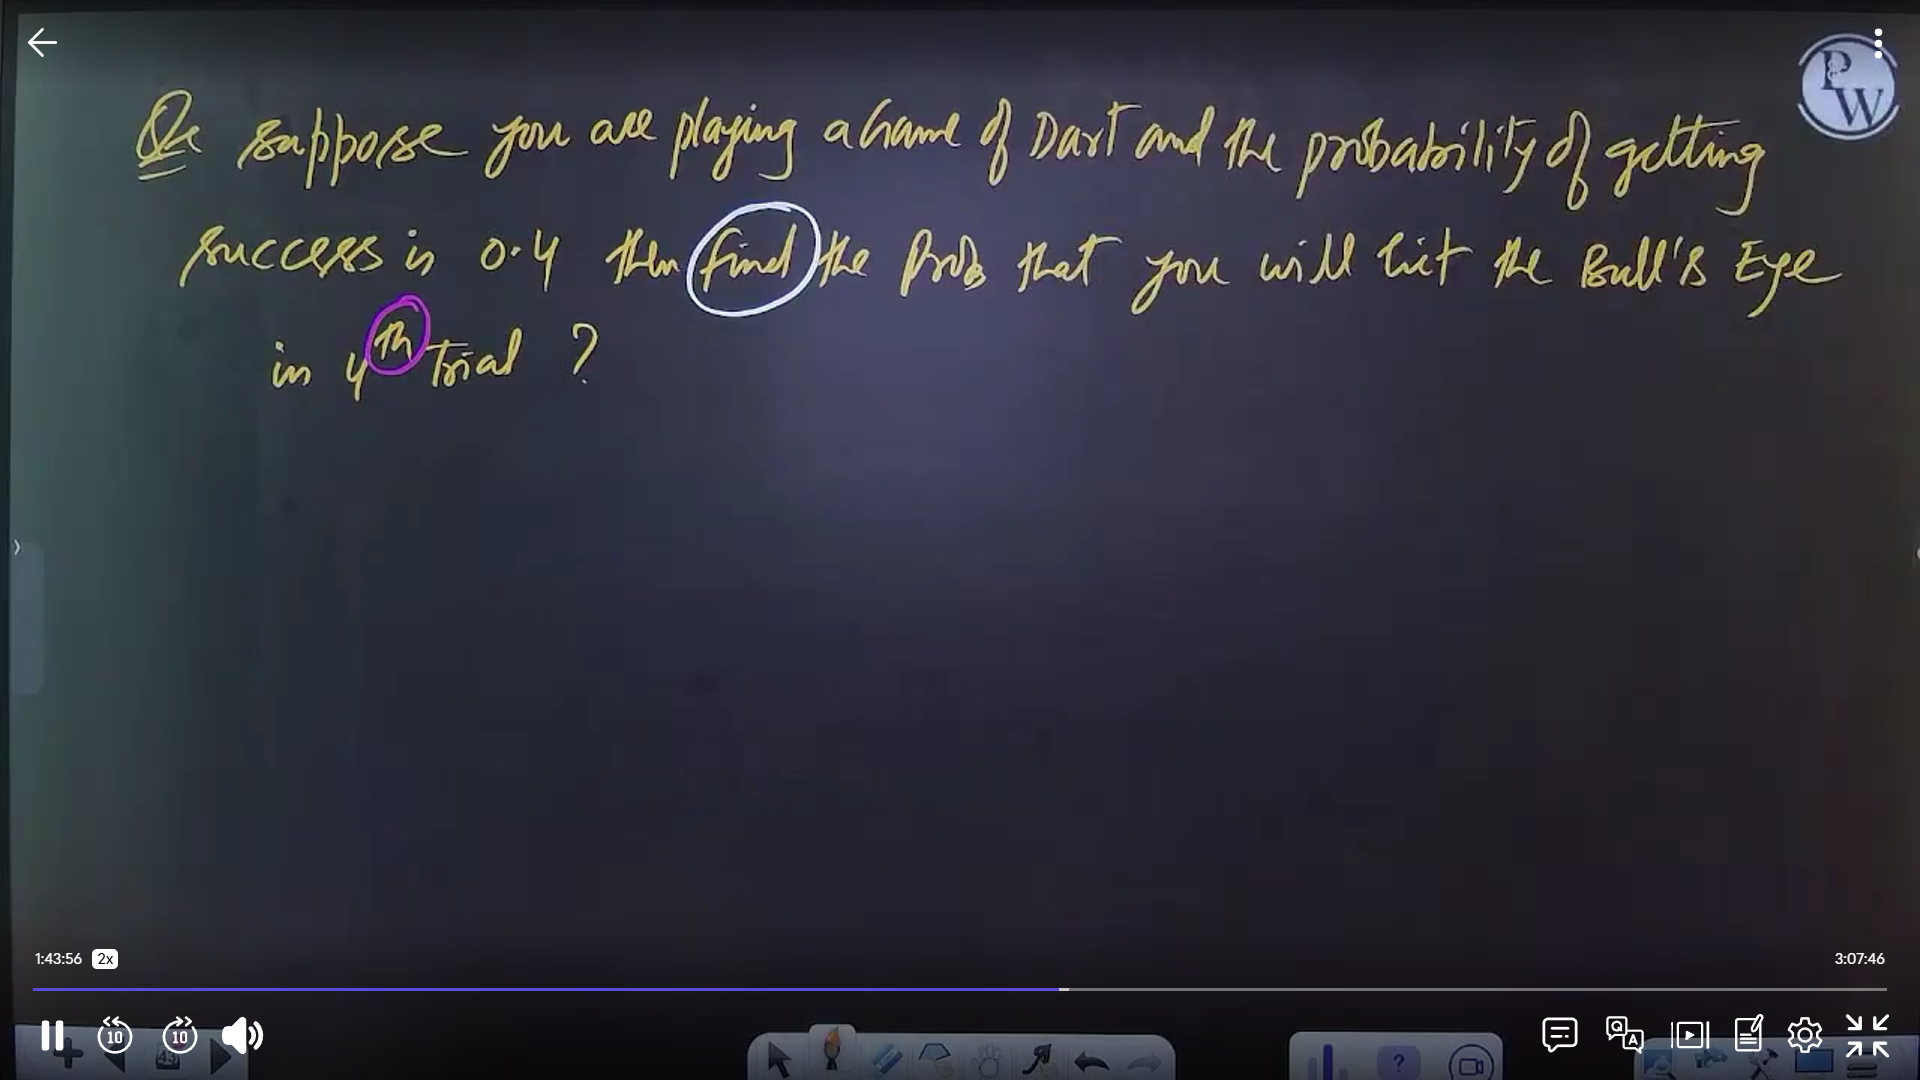 Qn suppose you are playing a Game of Dart and the probability of getting
success is 0.4 then find the Prob that you will hit the Bull's Eye
in 4th trial ?
PW
1:43:56 2x
3:07:46
10 10
45
?